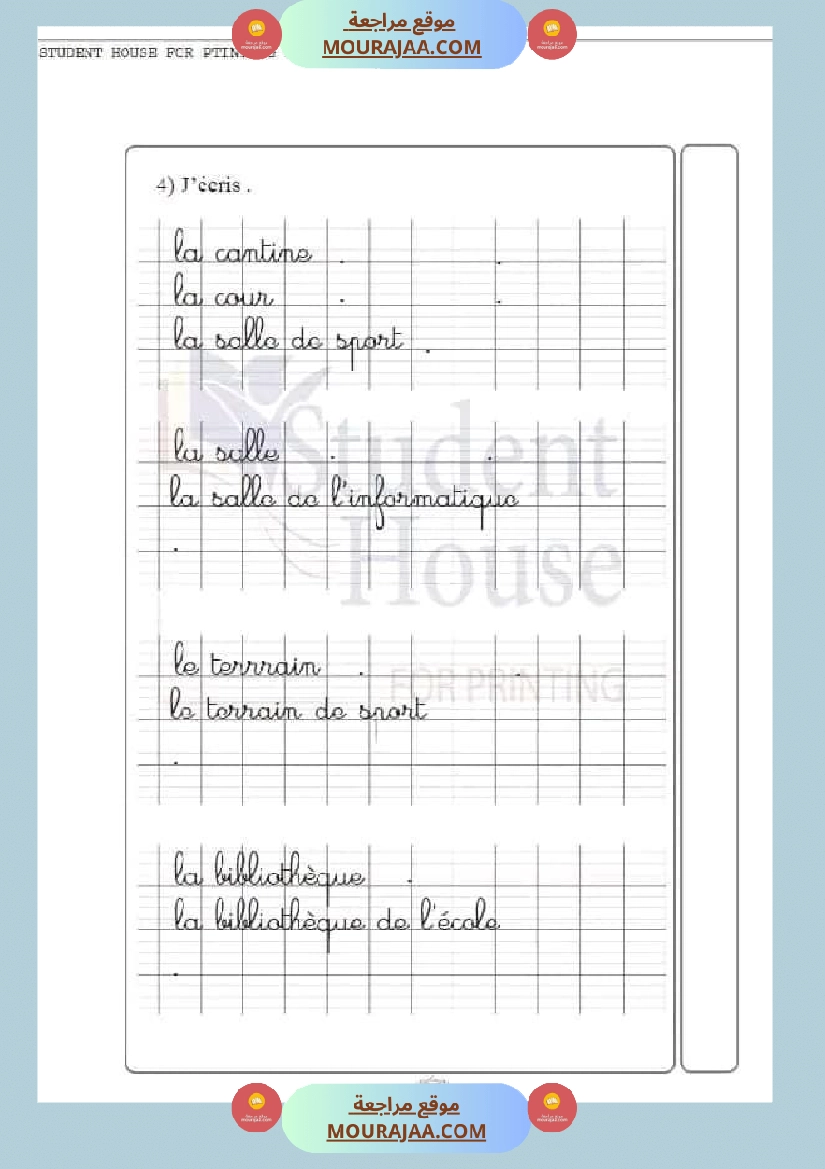 موقع مراجعة
MOURAJAA.COM
STUDENT HOUSE FOR
4) J'écris .
la cantine . .
la cour . .
la salle de sport .
la salle . .
la salle de l'informatique
.
le terrrain . .
le terrain de sport
.
la bibliothèque .
la bibliothèque de l'école
.
Student
House
FOR PRINTING
موقع مراجعة
MOURAJAA.COM